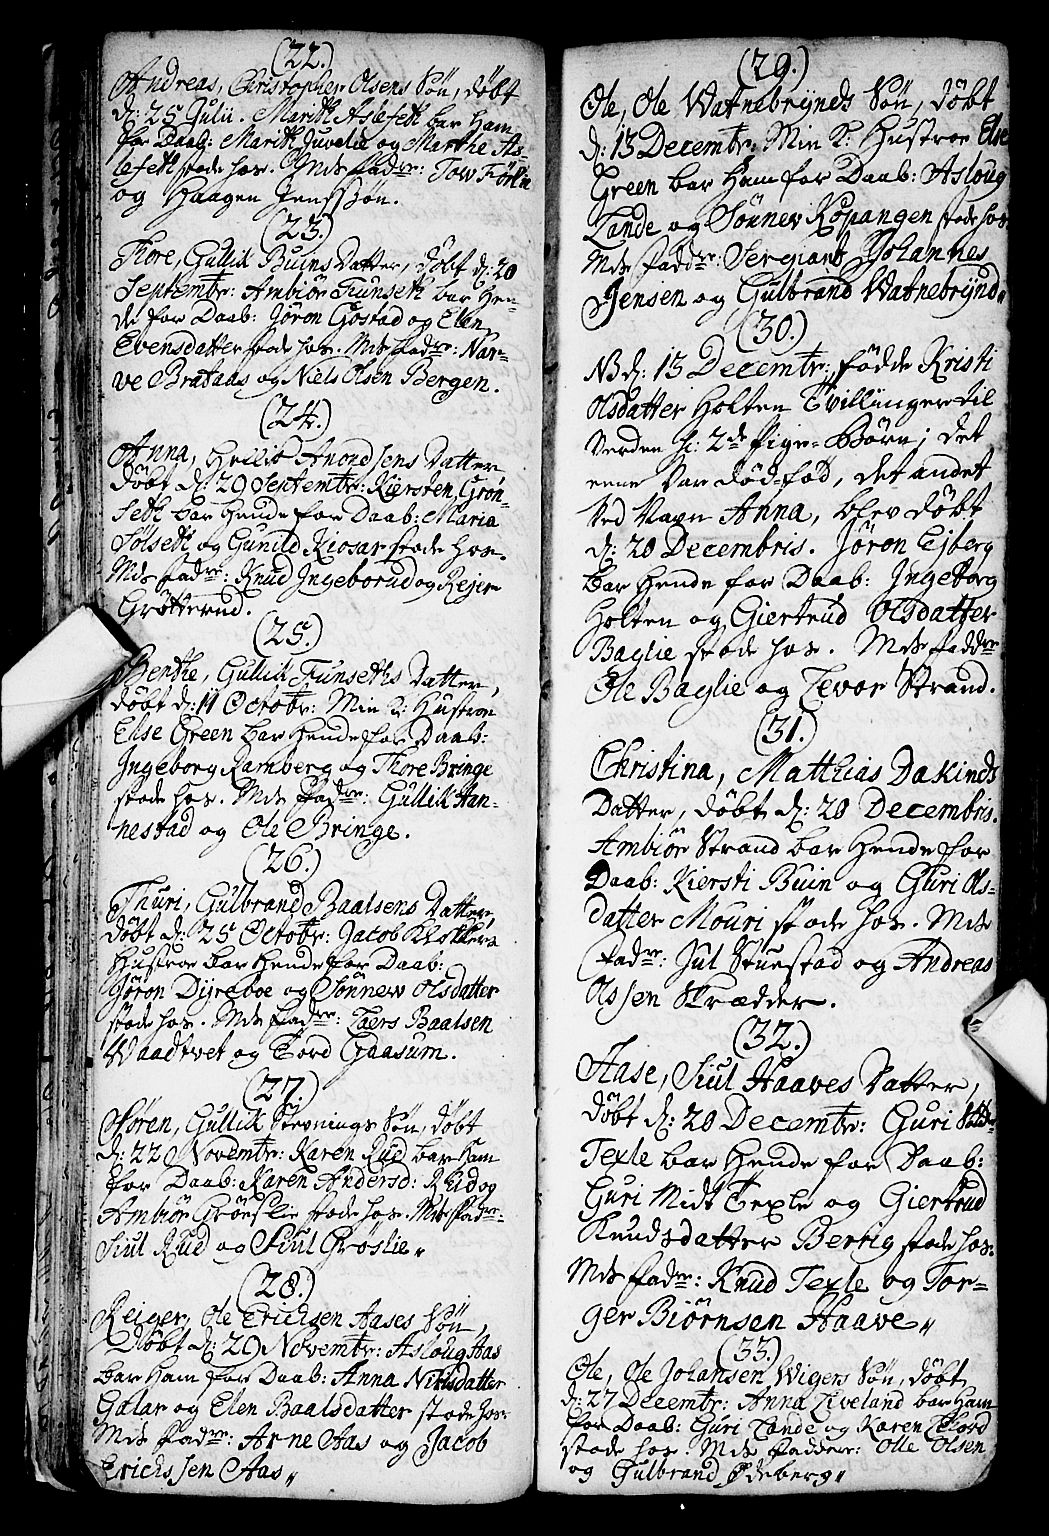 (22.)
Andreas, Christopher Olsens Sön, döbt
d: 25 Julii. Marith Aslefeth bar Ham
for Daab: Marith Juvelie og Marthe As-
lefeth stode hos. Mds fadre: Tow Förlie
og Haagen Jenssön.
(23.)
Thore, Gullik Buins Datter, döbt d: 20
Septembr: Ambiör Funseth bar Hen-
de for Daab: Jöron Gostad og Elen
Evensdatter stode hos. Mds fadre: Nar-
ve Brataas og Niels Olsen Bergen.
(24.)
Anna, Hellie Anondsens Datter
döbt d: 20 Septembr: Kiersten Grön-
seth bar Hende for Daab: Maria
Sölseth og Gunild Kiosar stode hos.
Mds fadre: Knud Ingeborud og Rejer
Grötterud.
(25.)
Berthe, Gullik Funseths Datter,
döbt d: 11 Octobr: Min K: Hustroe
Else Green bar Hende for Daab:
Ingeborg Ramberg og Thore Bringe
stode hos. Mds fadre: Gullik Han-
nestad og Ole Bringe.
(26.)
Thuri, Gulbrand Baalsens Datter,
döbt d: 25 Octobr: Jacob Klokkers
Hustroe bar Hende for Daab:
Jöron Dijreboe og Sönnew Olsdatter
stode hos. Mds fadre: Laers Baalsen
Waadtvet og Tord Gaasum.
(27.)
Sören, Gullik Stevnings Sön, döbt
d: 22 Novembr: Karen Rud bar Ham
for Daab: Karen Andersd: Rud og
Ambiör Gröeslie stode hos. Mds fadre:
Siul Rud og Siul Gröslie
(28.)
Reiger, Ole Erichsen Aases Sön,
Döbt d: 29 Novembr: Asloug Aas
bar Ham for Daab: Anna Nielsdatter
Galar og Elen Baalsdatter stode hos.
Mds fadre: Arne Aas og Jacob
Erichssen Aas
(29.)
Ole, Ole Watnebrijnds Sön, döbt
d: 13 Decembr: Min K: Hustroe Else
Green bar Ham for Daab: Asloug
Lande og Sönnev Kopangen stode hos.
Mds fadr: Sergiant Johannes
Jensen og Gulbrand Watnebrijnd
(30.)
NB d: 13 Decembr: födde Kristi
Olsdatter Holten Tvillinger til
Verden h: 2de Pige-Börn; det
eene var död-föd, det andet
ved Navn Anna, blev döbt
d: 20 Decembris. Jöron Ejberg
bar Hende for Daab: Ingeborg
Holten og Giertrud Olsdatter
Baglie stode hos. Mds faddre
Ole Baglie og Tevor Strand.
(31.)
Christina, Matthias Dakinds
Datter, döbt d: 20 Decembris.
Ambiör Strand bar Hende for
Daab: Kiersti Buin og Guri Ols-
datter Mouri stode hos. Mds
fadre: Jul Stuestad og Andreas
Olssen Skrædder.
(32.)
Aase, Siul Haaves Datter,
döbt d: 20 Decembr: Guri
Texle bar Hende for Daab:
Guri Midt Texle og Giertrud
Knudsdatter Bertig stode hos.
Mds fadre: Knud Texle og Tor-
ger Biörnsen Haave
(33.)
Ole, Ole Johansen Wigens Sön, döbt
d: 27 Decembr: Anna Liveland bar Ham
for Daab: Guri Lande og Karen
stode hos. Mds fadder: Olle Olsen
og Gulbrand Ödeberg